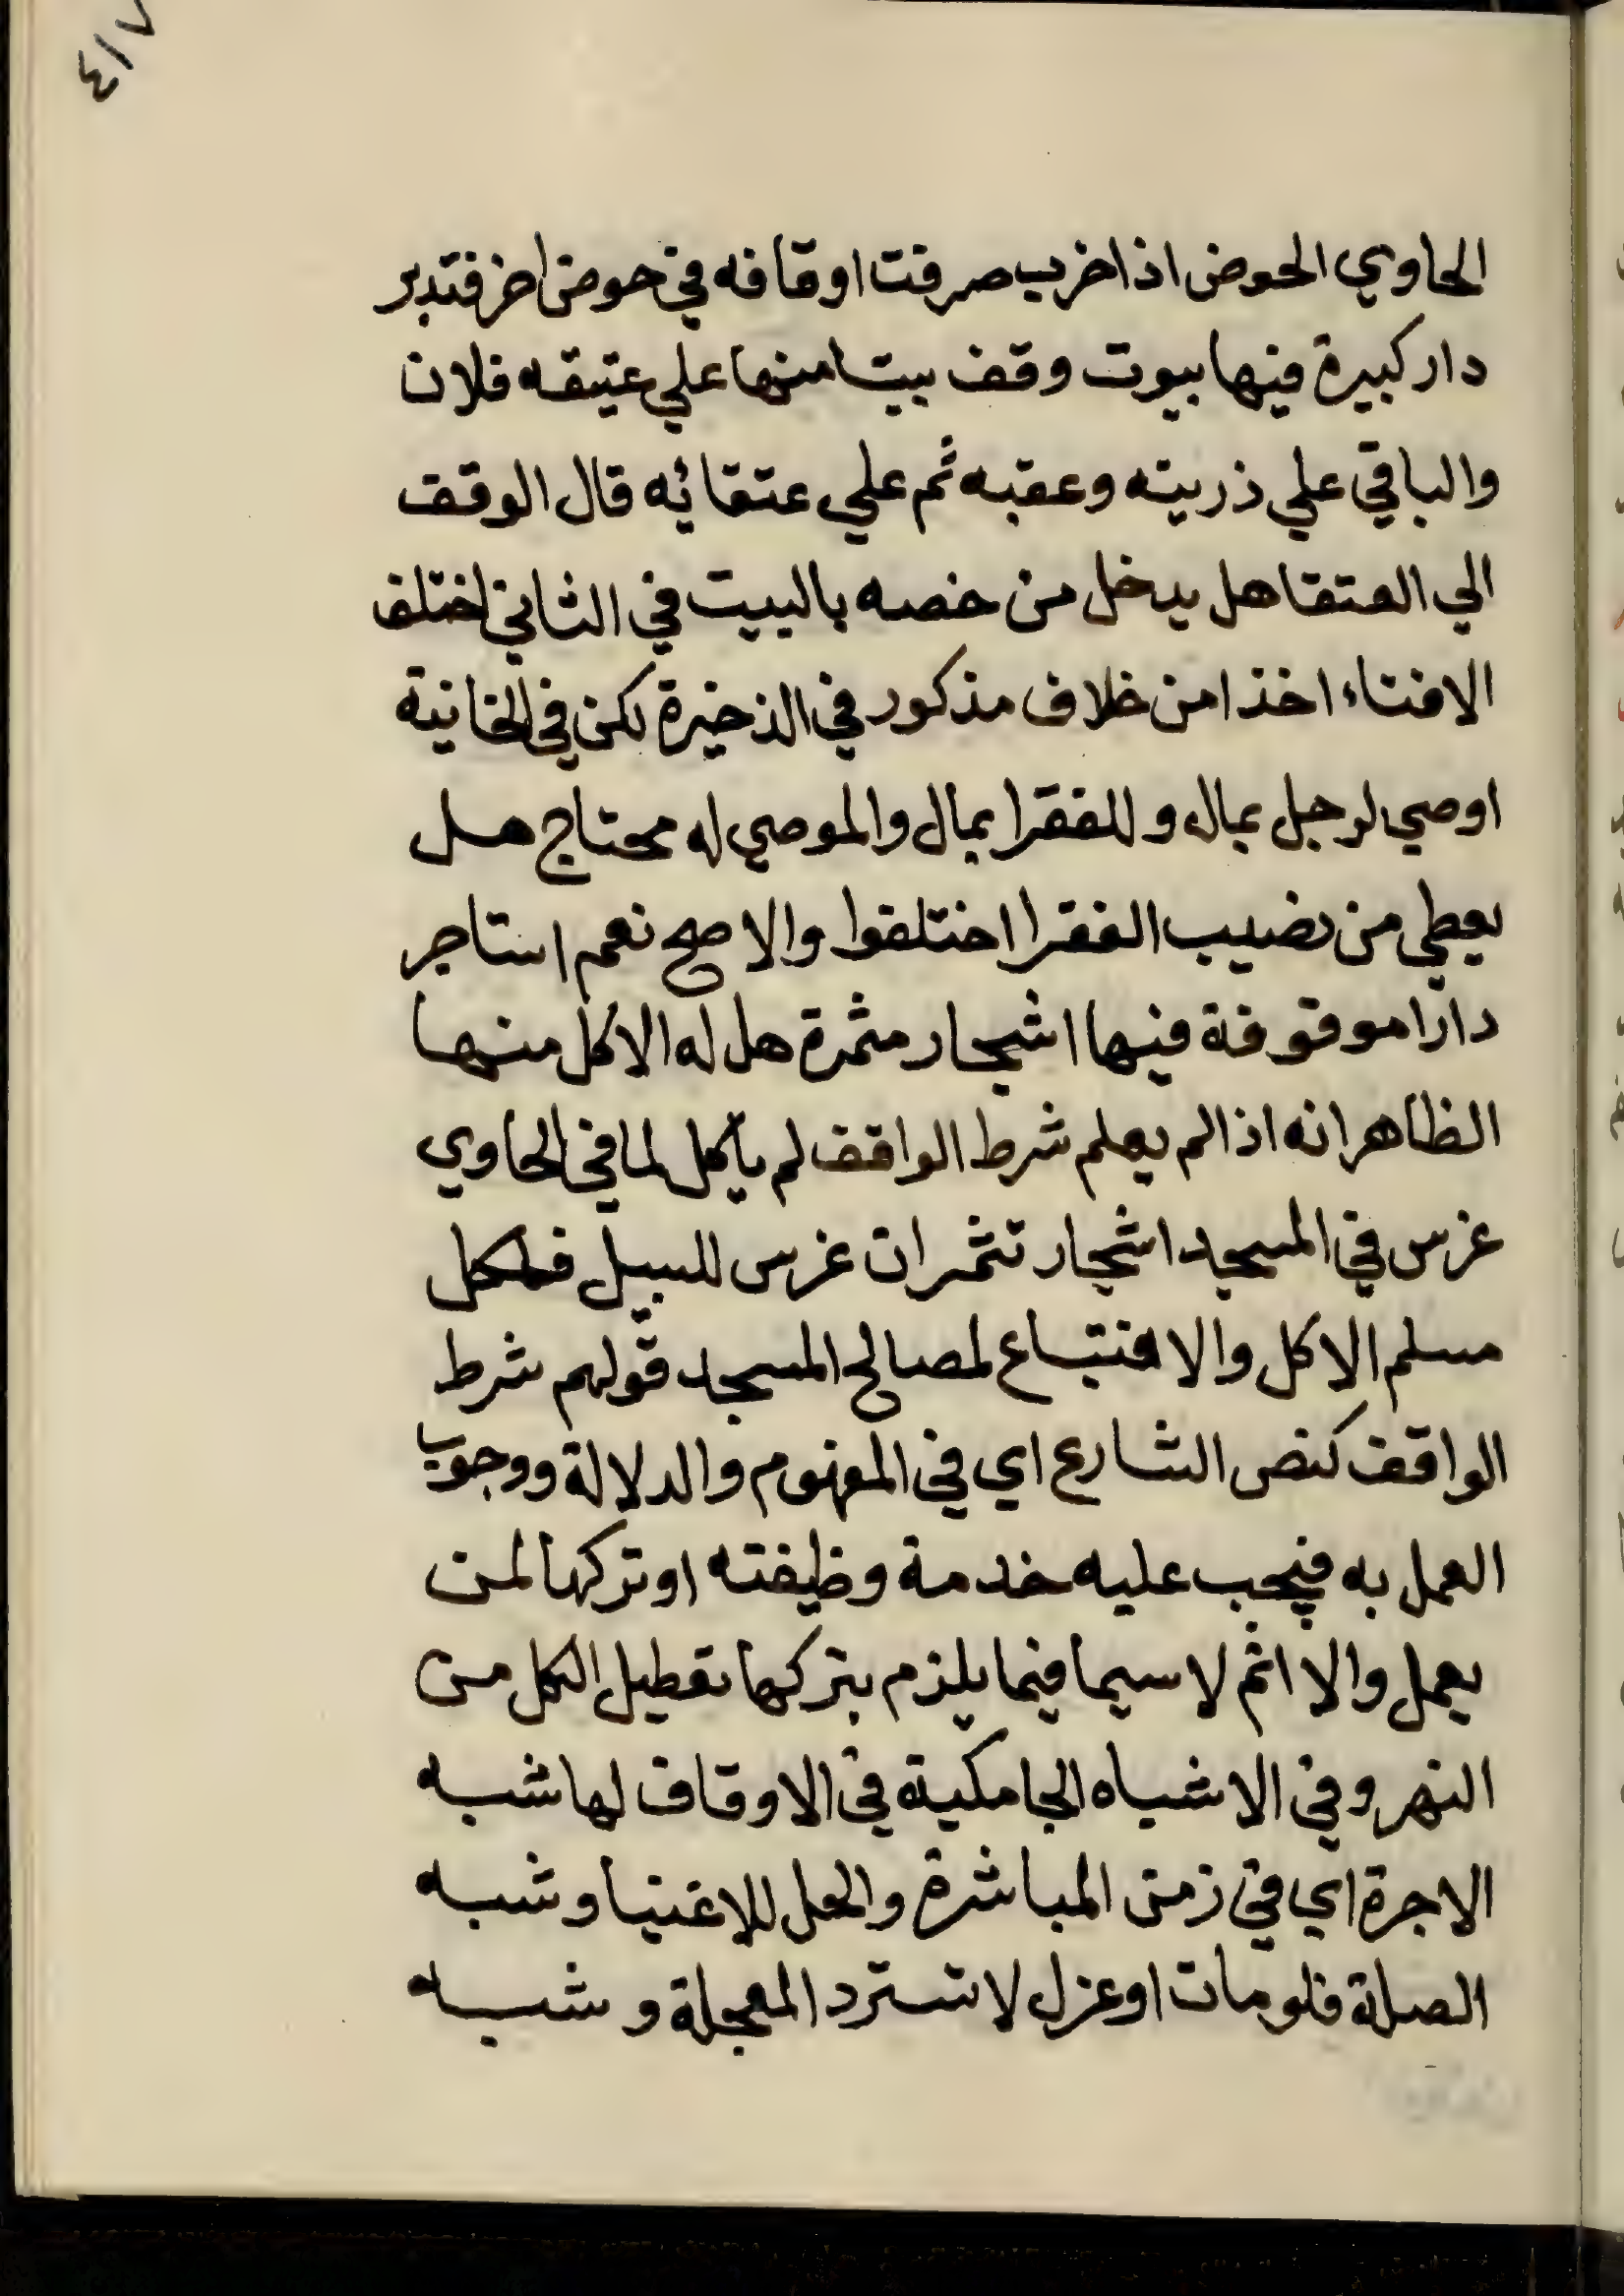 ٤١٧
الحاوي الحوض اذا خرب صرفت اوقافه في حوض اخر فتدبر
دار كبيرة فيها بيوت وقف بيتا منها علي عتيقه فلان
والباقي علي ذريته وعقبه ثم علي عتقائه قال الوقف
الي العتقا هل يدخل من خصه بالبيت في الثاني اختلف
الافتاء اخذا من خلاف مذكور في الذخيرة لكن في الخانية
اوصي لرجل بمال وللفقرا بمال والموصي له محتاج هل
يعطي من نصيب الفقرا اختلفوا والاصح نعم استاجر
دارا موقوفة فيها اشجار مثمرة هل له الاكل منها
الظاهر انه اذا لم يعلم شرط الواقف لم يأكل لما في الحاوي
غرس في المسجد اشجار تثمر ان غرس للسبيل فلكل
مسلم الاكل والا فتباع لمصالح المسجد قولهم شرط
الواقف كنص الشارع اي في المفهوم والدلالة ووجوب
العمل به فيجب عليه خدمة وظيفته او تركها لمن
يعمل والا اثم لا سيما فيما يلزم بتركها تعطيل الكل من
النهر وفي الاشباه الجامكية في الاوقاف لها شبه
الاجرة اي في زمن المباشرة والحل للاغنيا وشبه
الصلة فلو مات او عزل لا تسترد المعجلة وشبه